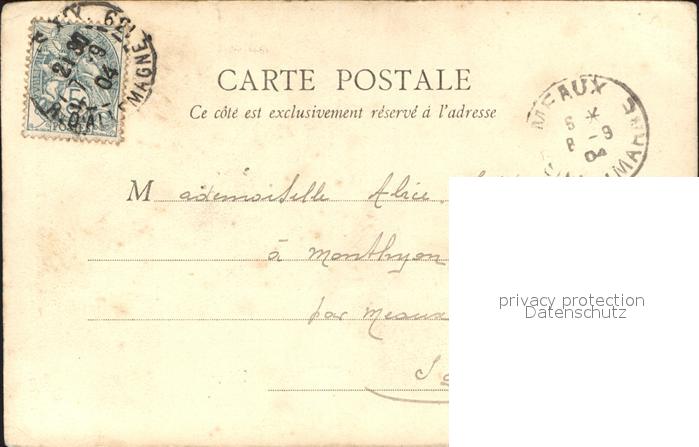 CARTE POSTALE
Ce côté est exclusivement réservé à l'adresse
MEAUX
6 *
8 -9
04
Mademoiselle Alice
à Monthyon
par Meaux
privacy protection
Datenschutz